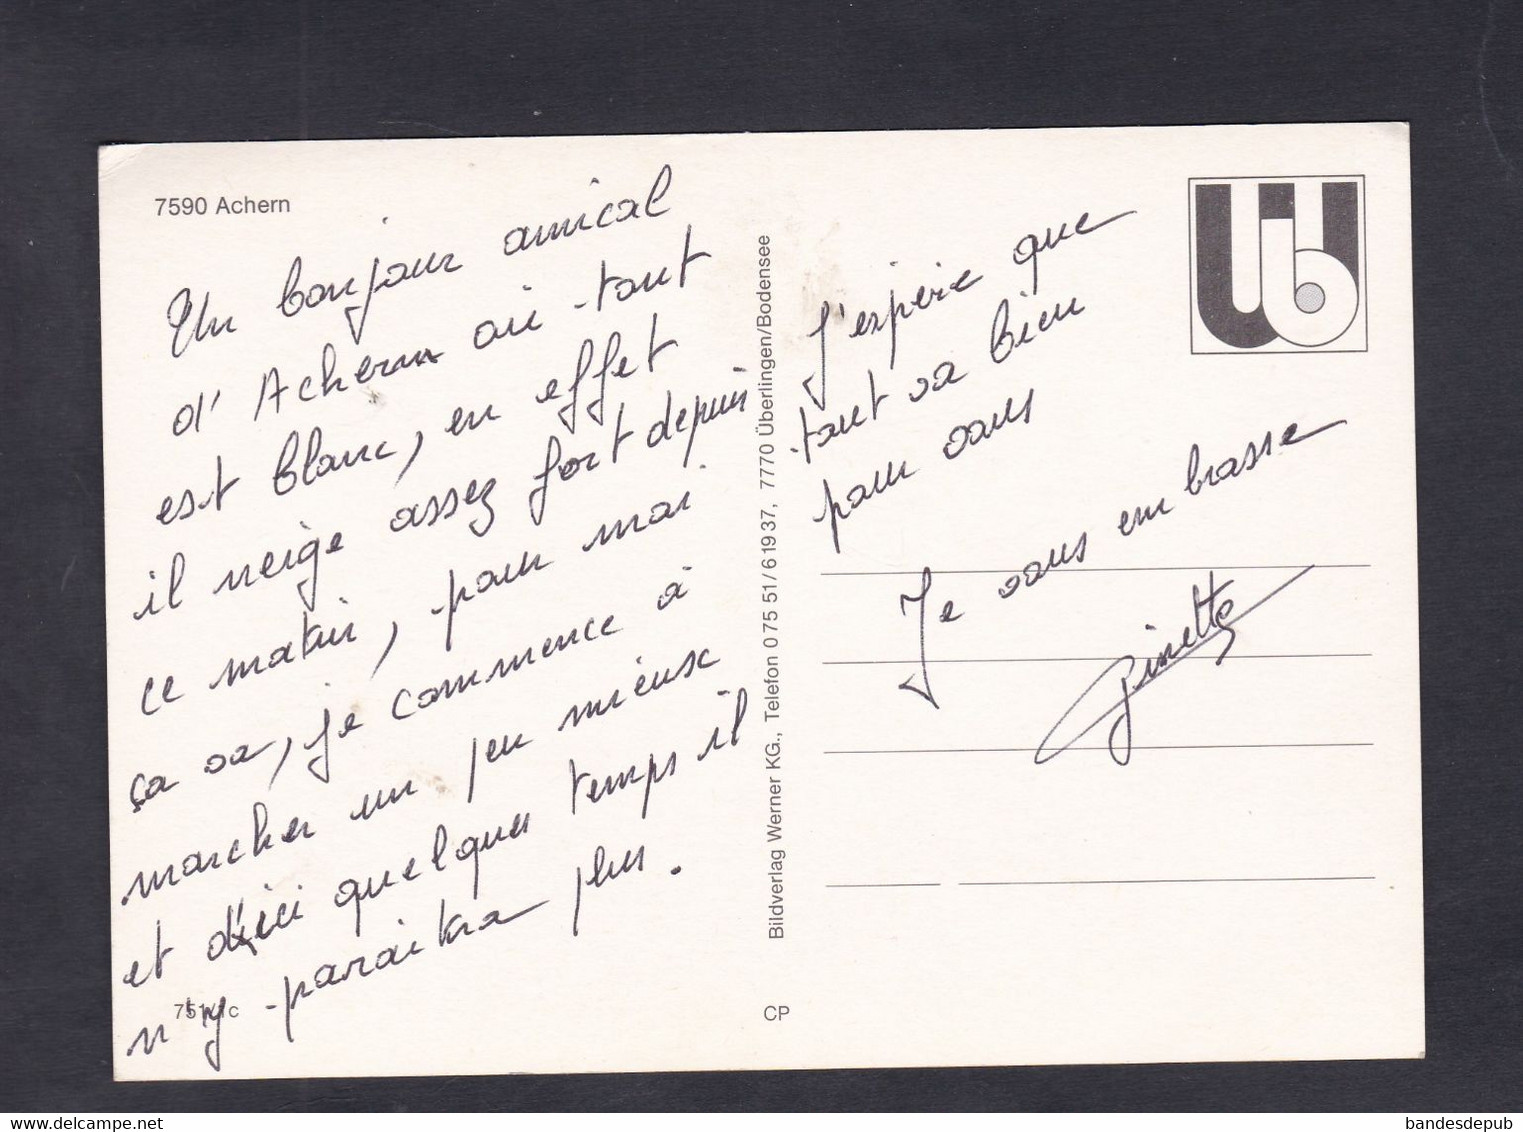 7590 Achern
Un bonjour amical
d'Achern où tout
est blanc, en effet
il neige assez fort depuis
ce matin, pour moi
ça va, je commence à
marcher un peu mieux
et d'ici quelques temps il
n'y paraitra plus.
7511c
Bildverlag Werner KG., Telefon 0 75 51/6 19 37, 7770 Überlingen/Bodensee
CP
Ub
J'espère que
tout va bien
pour vous
Je vous embrasse
Ginette
bandesdepub